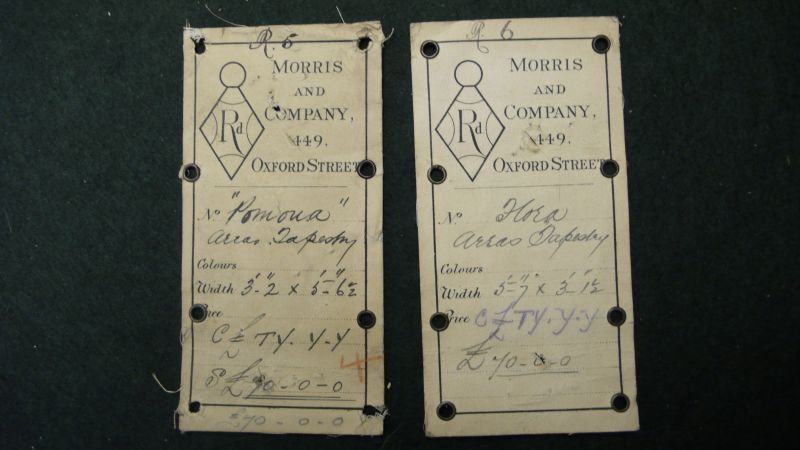 R. 5
MORRIS
AND
COMPANY,
449,
OXFORD STREET
Rd
No "Pomona"
Arras Tapestry
Colours
Width 3'-2" x 5'-6½"
Price
C £ TY. Y-Y
S £70-0-0
4
£70-0-0
R. 6
MORRIS
AND
COMPANY,
449,
OXFORD STREET
Rd
No Flora
Arras Tapestry
Colours
Width 5'-7" x 3'-1½
Price C £ TY. Y-Y
£70-0-0